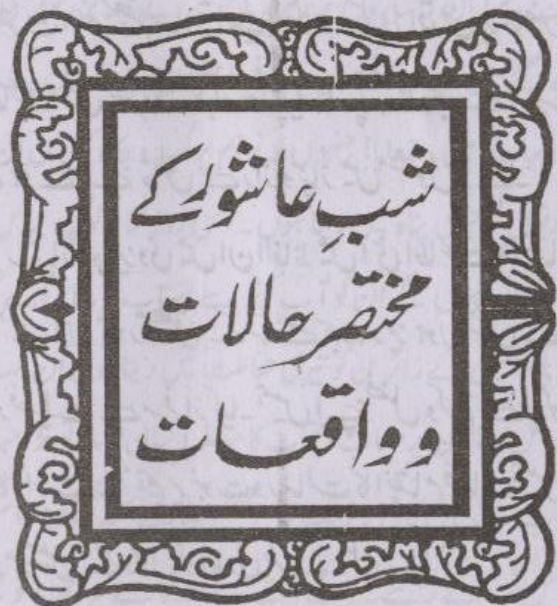 شبِ عاشور کے
مختصر حالات
و واقعات